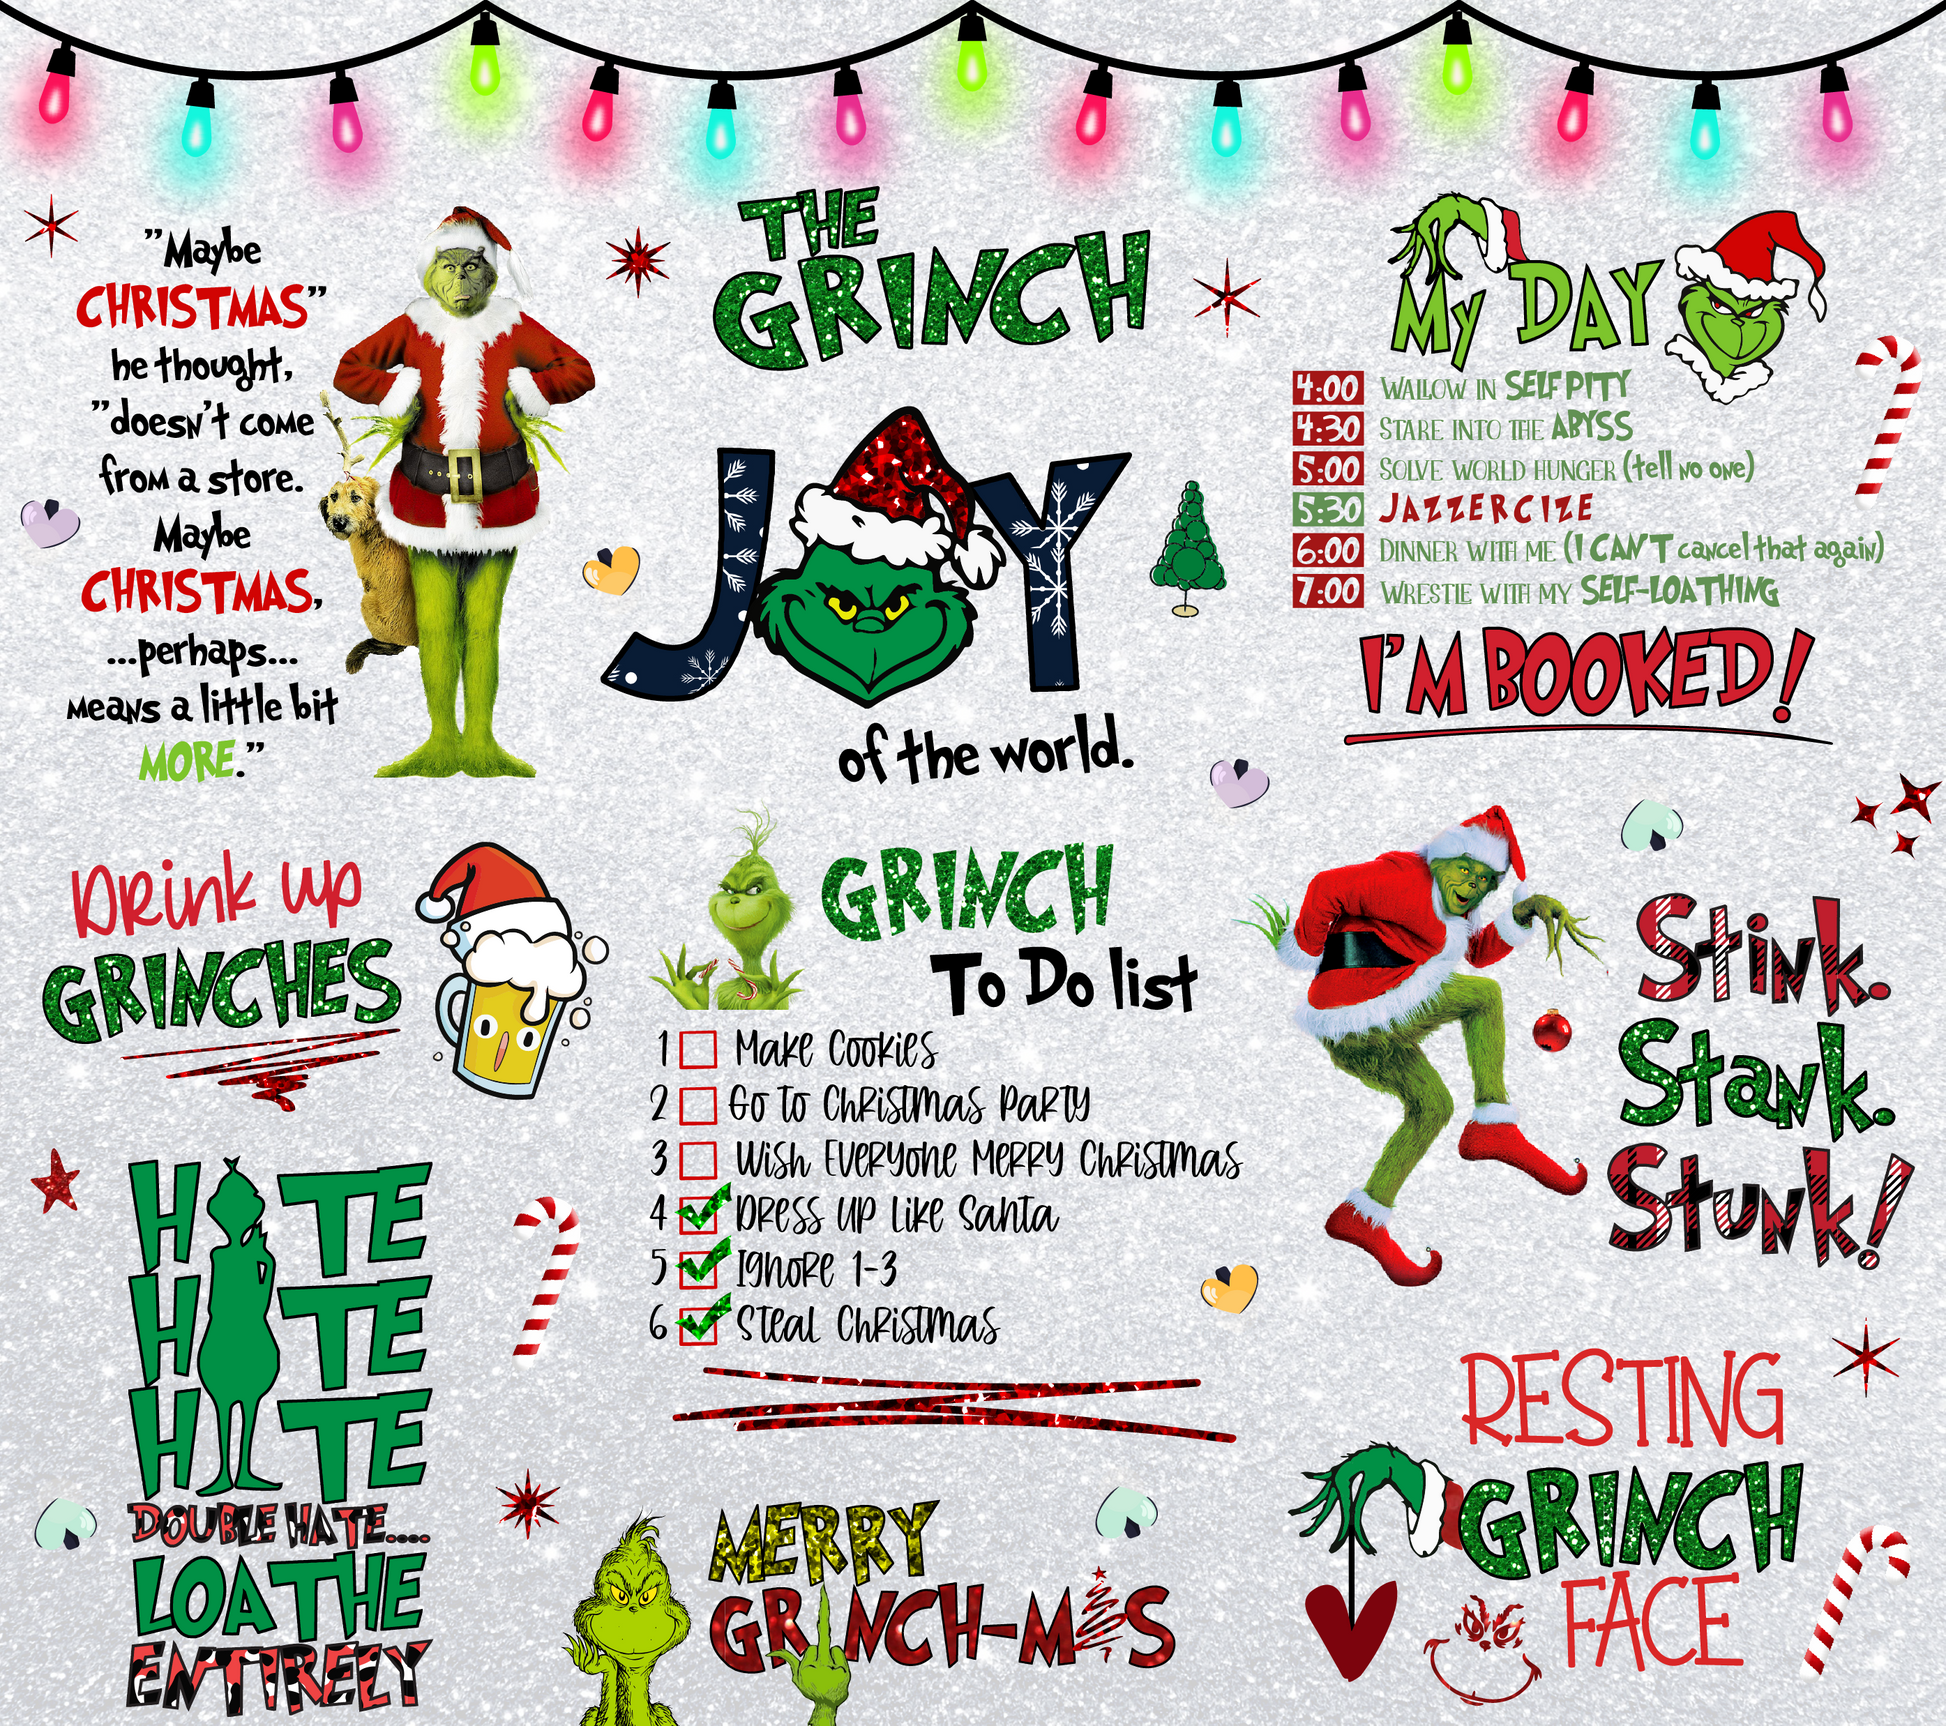 "Maybe
CHRISTMAS"
he thought,
"doesn't come
from a store.
Maybe
CHRISTMAS,
...perhaps...
means a little bit
MORE."
THE
GRINCH
JOY
of the world.
My DAY
4:00 WALLOW IN SELF PITY
4:30 STARE INTO THE ABYSS
5:00 SOLVE WORLD HUNGER (tell no one)
5:30 JAZZERCIZE
6:00 DINNER WITH ME (I CAN'T cancel that again)
7:00 WRESTLE WITH MY SELF-LOATHING
I'M BOOKED!
Drink up
GRINCHES
GRINCH
To Do list
1 Make Cookies
2 Go to Christmas Party
3 Wish Everyone Merry Christmas
4 Dress up Like Santa
5 Ignore 1-3
6 Steal Christmas
Stink.
Stank.
Stunk!
HATE
HATE
HATE
DOUBLE HATE....
LOATHE
ENTIRELY
MERRY
GRINCH-MAS
RESTING
GRINCH
FACE